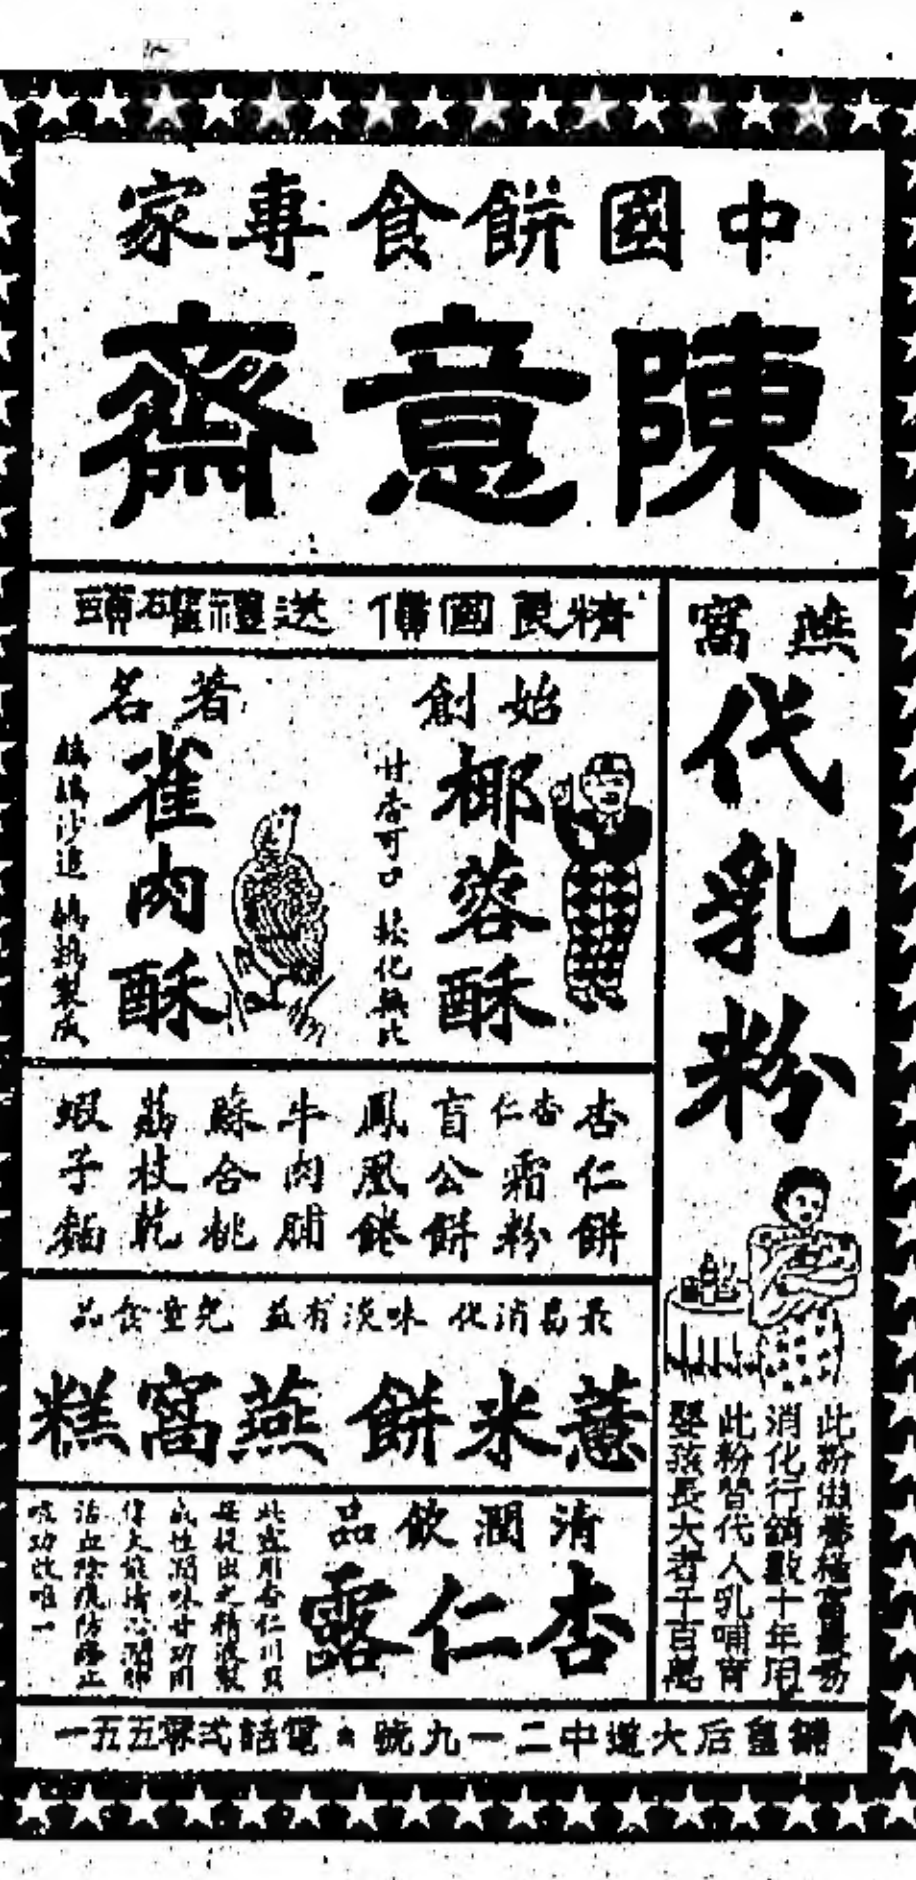 中國餅食專家
陳意齋
燕窩
代乳粉
此粉滋養極富最易
消化行銷數十年用
此粉替代人乳哺育
嬰孩長大者千百萬
送禮罐頭
始創
椰蓉酥
甘香可口 鬆化無比
著名
雀肉酥
鷓鴣沙追 鵪鶉製成
杏仁餅
杏仁霜粉
盲公餅
鳳凰餞
牛肉脯
蘇合桃
荔枝乾
蝦子麵
最易消化 味淡有益 兒童食品
薏米餅 燕窩糕
清潤飲品
杏仁露
此露用杏仁川貝
母提出之精液製
成性潤味甘功用
偉大能清心潤肺
活血除痰防癆止
咳功效唯一
皇后大道中二一九號 ★ 電話式零五五一